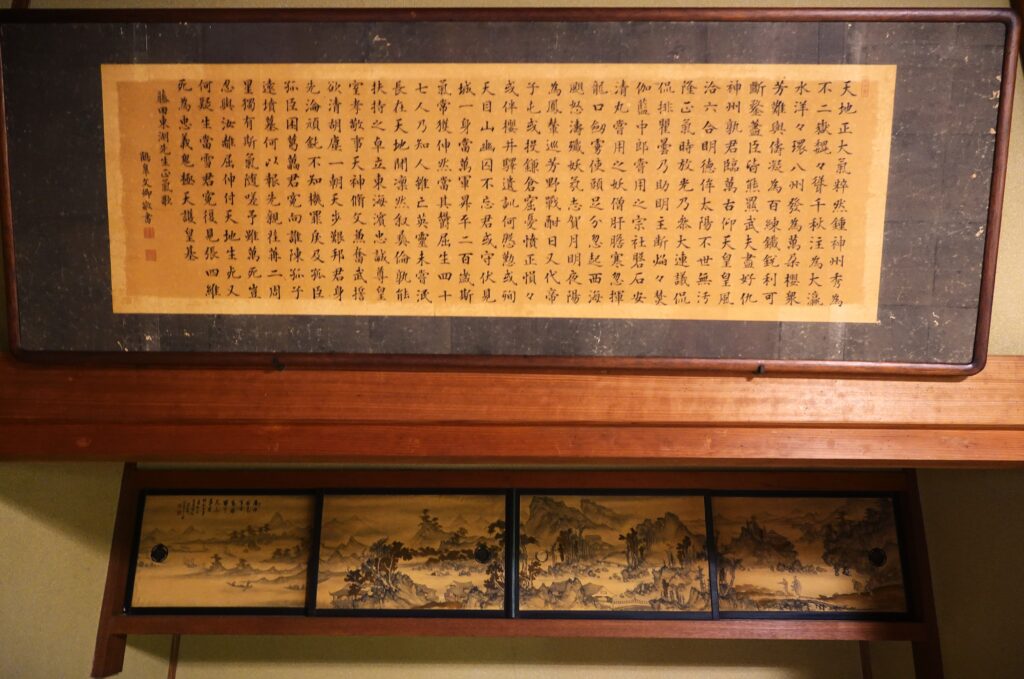 天地正大氣粹然鍾神州秀為
不二嶽巍々聳千秋注為大瀛
水洋々環八州發為萬朶櫻衆
芳難與儔凝為百練鐵銳利可
斷鍪藎臣皆熊羆武夫盡好仇
神州孰君臨萬古仰天皇皇風
洽六合明德侔太陽不世無汚
隆正氣時放光乃參大連議侃
侃排瞿曇乃助明主斷焰々焚
伽藍中郎嘗用之宗社磐石安
清丸嘗用之妖僧肝膽寒忽揮
龍口劍虜使頭足分忽起西海
颶怒濤殲妖氛志賀月明夜陽
為鳳輦巡芳野戰酣日又代帝
子屯或投鎌倉窟憂憤正愪々
或伴櫻井驛遺訓何慇懃或殉
天目山幽囚不忘君或守伏見
城一身當萬軍昇平二百歲斯
氣常獲伸然當其鬱屈生四十
七人乃知人雖亡英靈未嘗泯
長在天地間凛然敘彝倫孰能
扶持之卓立東海濱忠誠尊皇
室孝敬事天神脩文兼奮武誓
欲清胡塵一朝天步艱邦君身
先淪頑鈍不知機罪戾及孤臣
孤臣困葛藟君冤向誰陳孤子
遠墳墓何以報先親荏苒二周
星獨有斯氣随嗟予雖萬死豈
忍與汝離屈伸付天地生死又
何疑生當雪君冤復見張四維
死為忠義鬼極天護皇基
藤田東湖先生正氣歌
文卿敬書